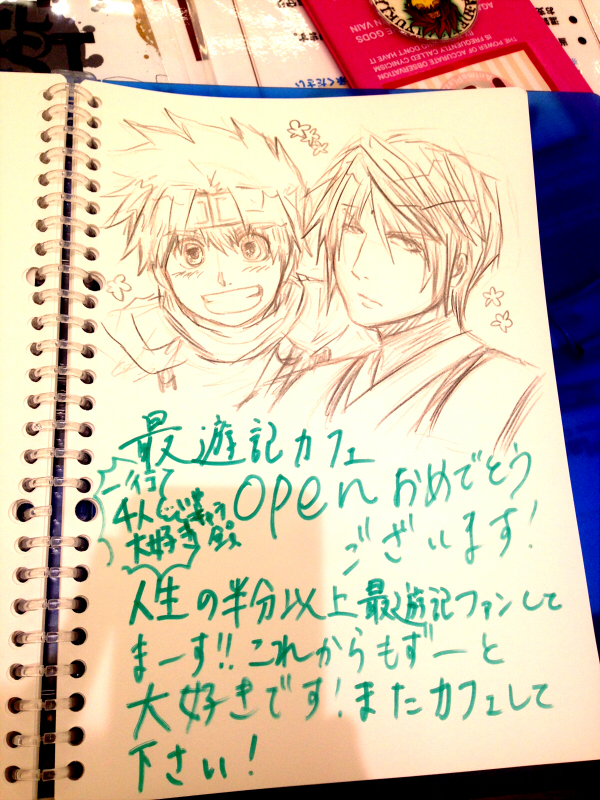 AGA
THE GODS
IN VAIN
THE POWER OF ACCURATE OBSERVATION
IS FREQUENTLY CALLED CYNICISM
ください
最遊記カフェ
open おめでとう
ございます!
一行
4人
大好き
人生の半分以上最遊記ファンして
まーす!!これからもずーと
大好きです!またカフェして
下さい!